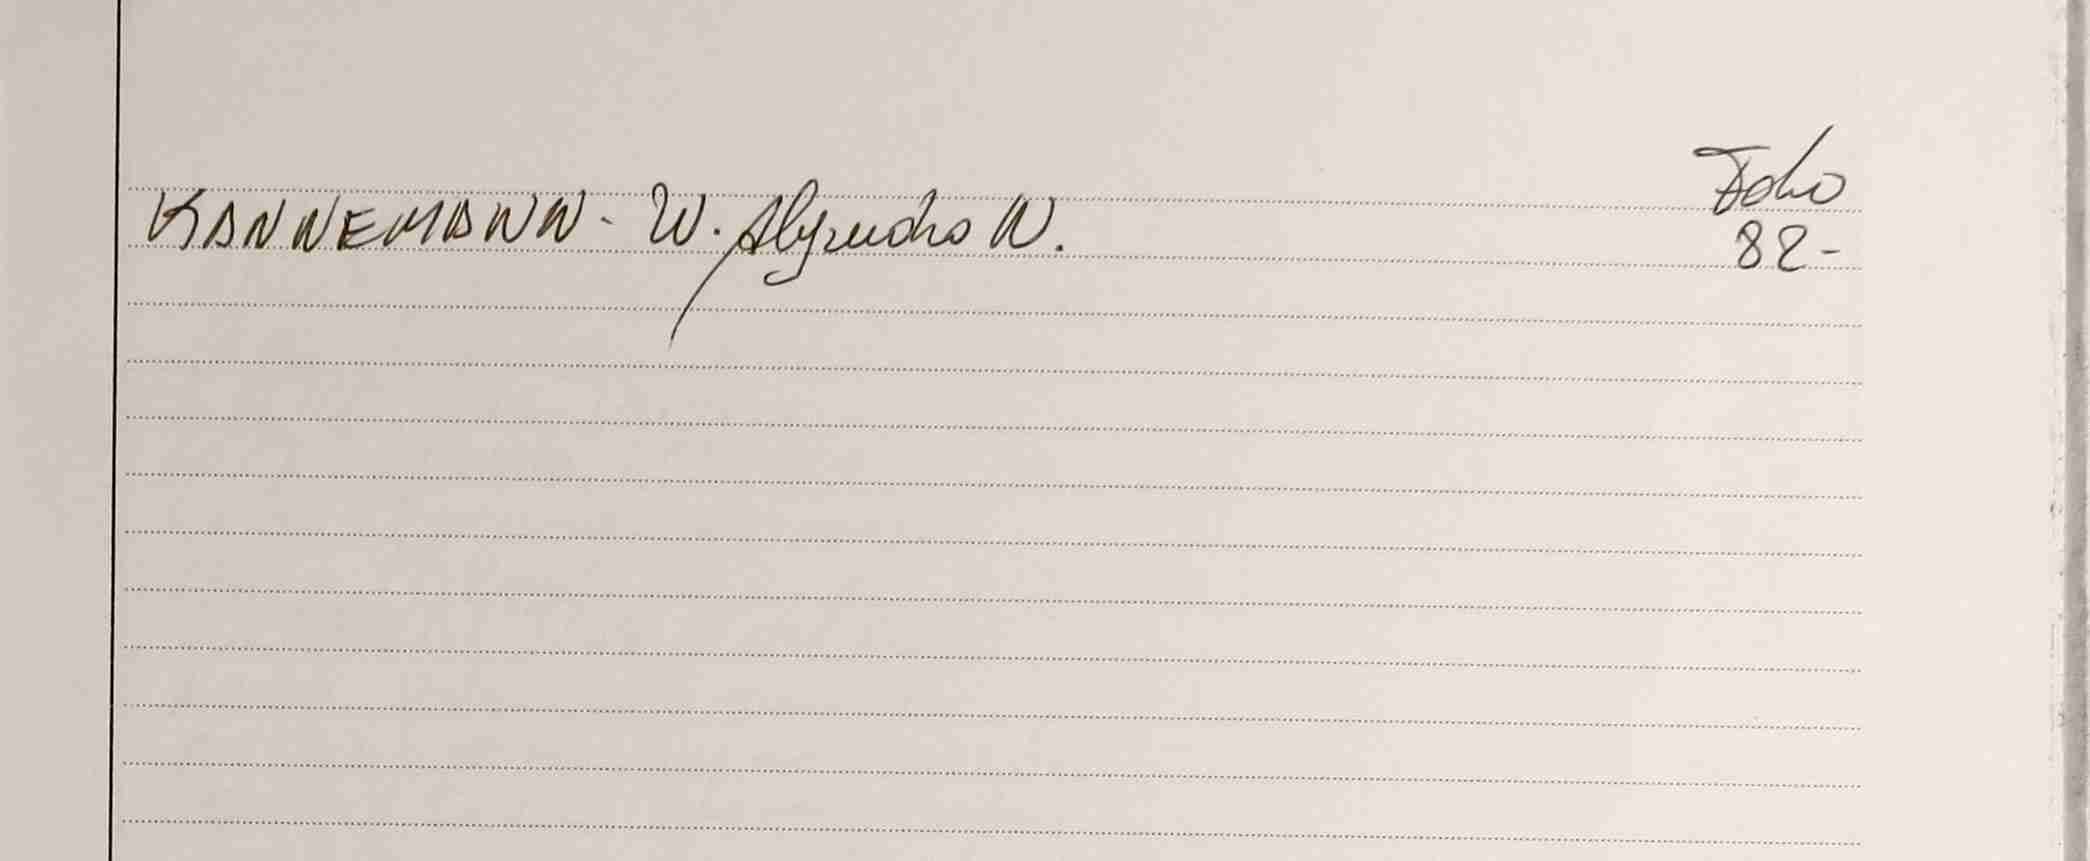 Folio
KANNEMANN - W. Alejandro N.
82-